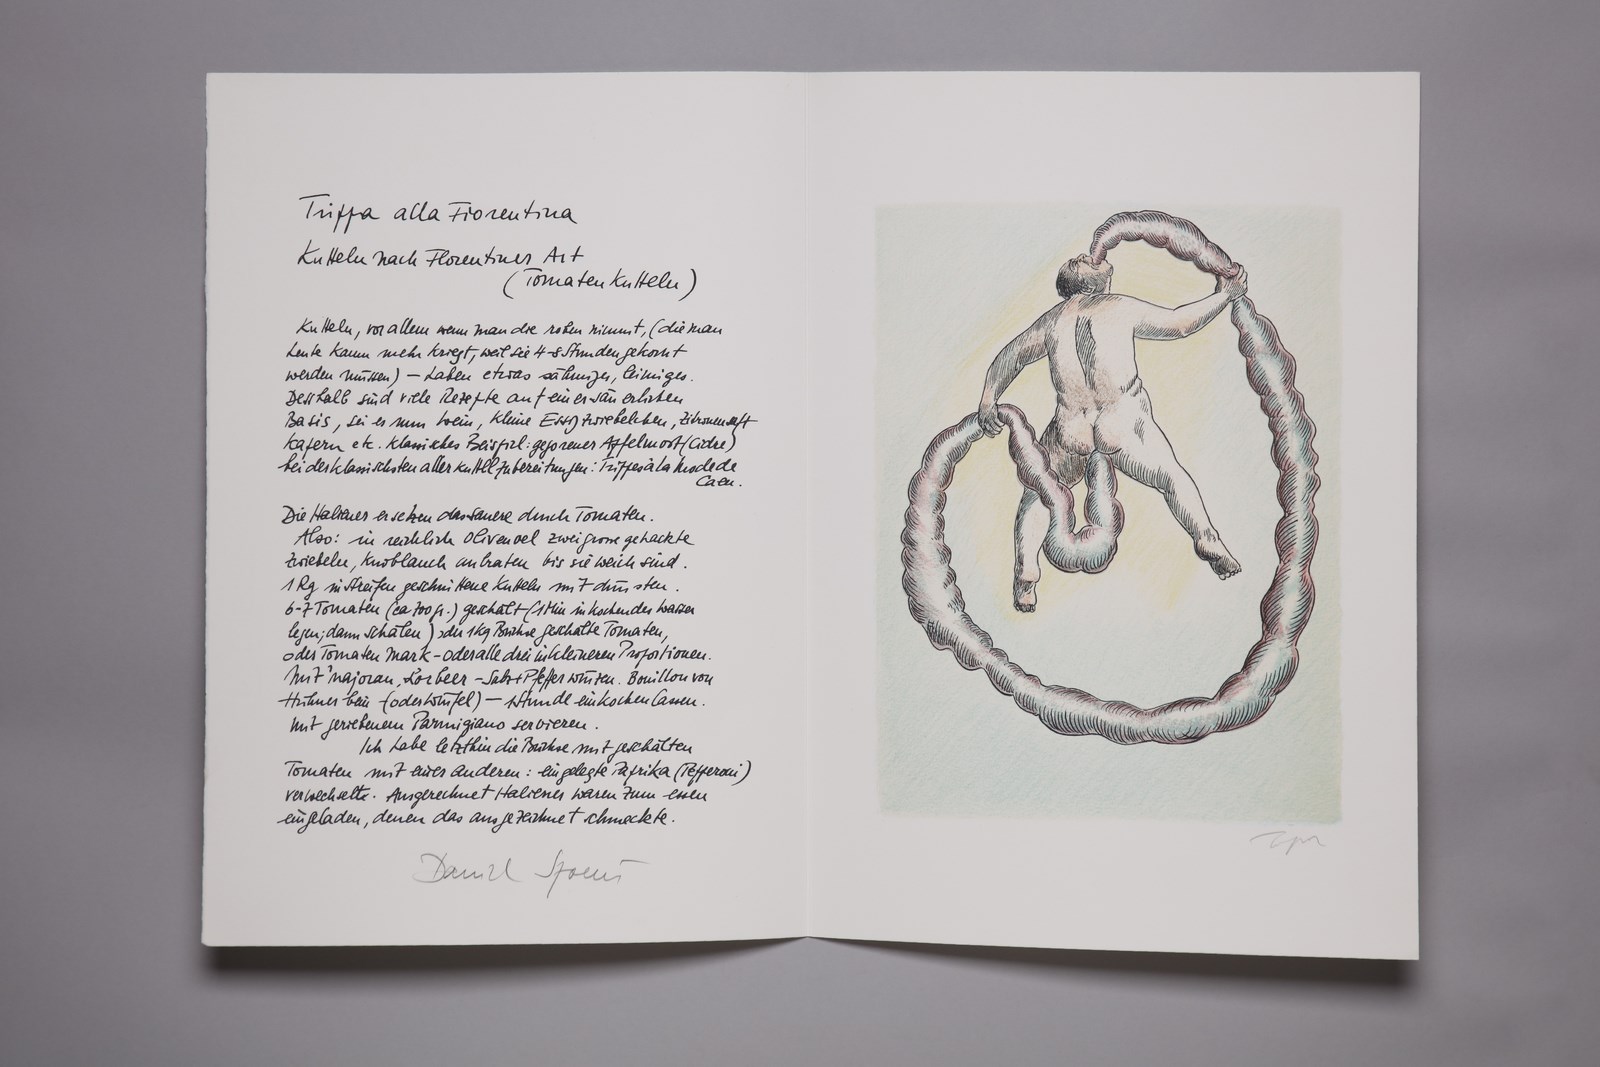 Trippa alla Fiorentina
Kutteln nach Florentiner Art
(Tomaten Kutteln)
Kutteln, vor allem wenn man die rohen nimmt, (die man
heute kaum mehr kriegt, weil sie 4-8 Stunden gekocht
werden müssen) — haben etwas sähmiges, leimiges.
Desshalb sind viele Rezepte auf einer säuerlichen
Basis, sei es nun Wein, kleine Essigzwiebelchen, Zitronensaft
Kapern etc. klassisches Beispiel: gegorener Apfelmost (Cidre)
bei der klassischsten aller Kuttelzubereitungen: Trippes à la mode de
Caen.
Die Italiener ersetzen das Sauere durch Tomaten.
Also: in reichlich Olivenoel zwei grosse gehackte
Zwiebeln, Knoblauch anbraten bis sie weich sind.
1 Kg in Streifen geschnittene Kutteln mit dünsten.
6-7 Tomaten (ca 700 gr.) geschält (1 Min in kochendes Wasser
legen; dann schälen) oder 1 kg Büchse geschälte Tomaten,
oder Tomaten Mark - oder alle drei in kleineren Proportionen.
Mit Majoran, Lorbeer - Salz + Pfeffer würzen. Bouillon von
Hühner bein (oder Würfel) — stunde einkochen lassen.
Mit geriebenem Parmigiano servieren.
Ich habe letzthin die Büchse mit geschälten
Tomaten mit einer anderen: eingelegte Paprika (Pefferoni)
verwechselte. Ausgerechnet Italiener waren zum essen
eingeladen, denen das ausgezeichnet schmeckte.
Daniel Spoerri